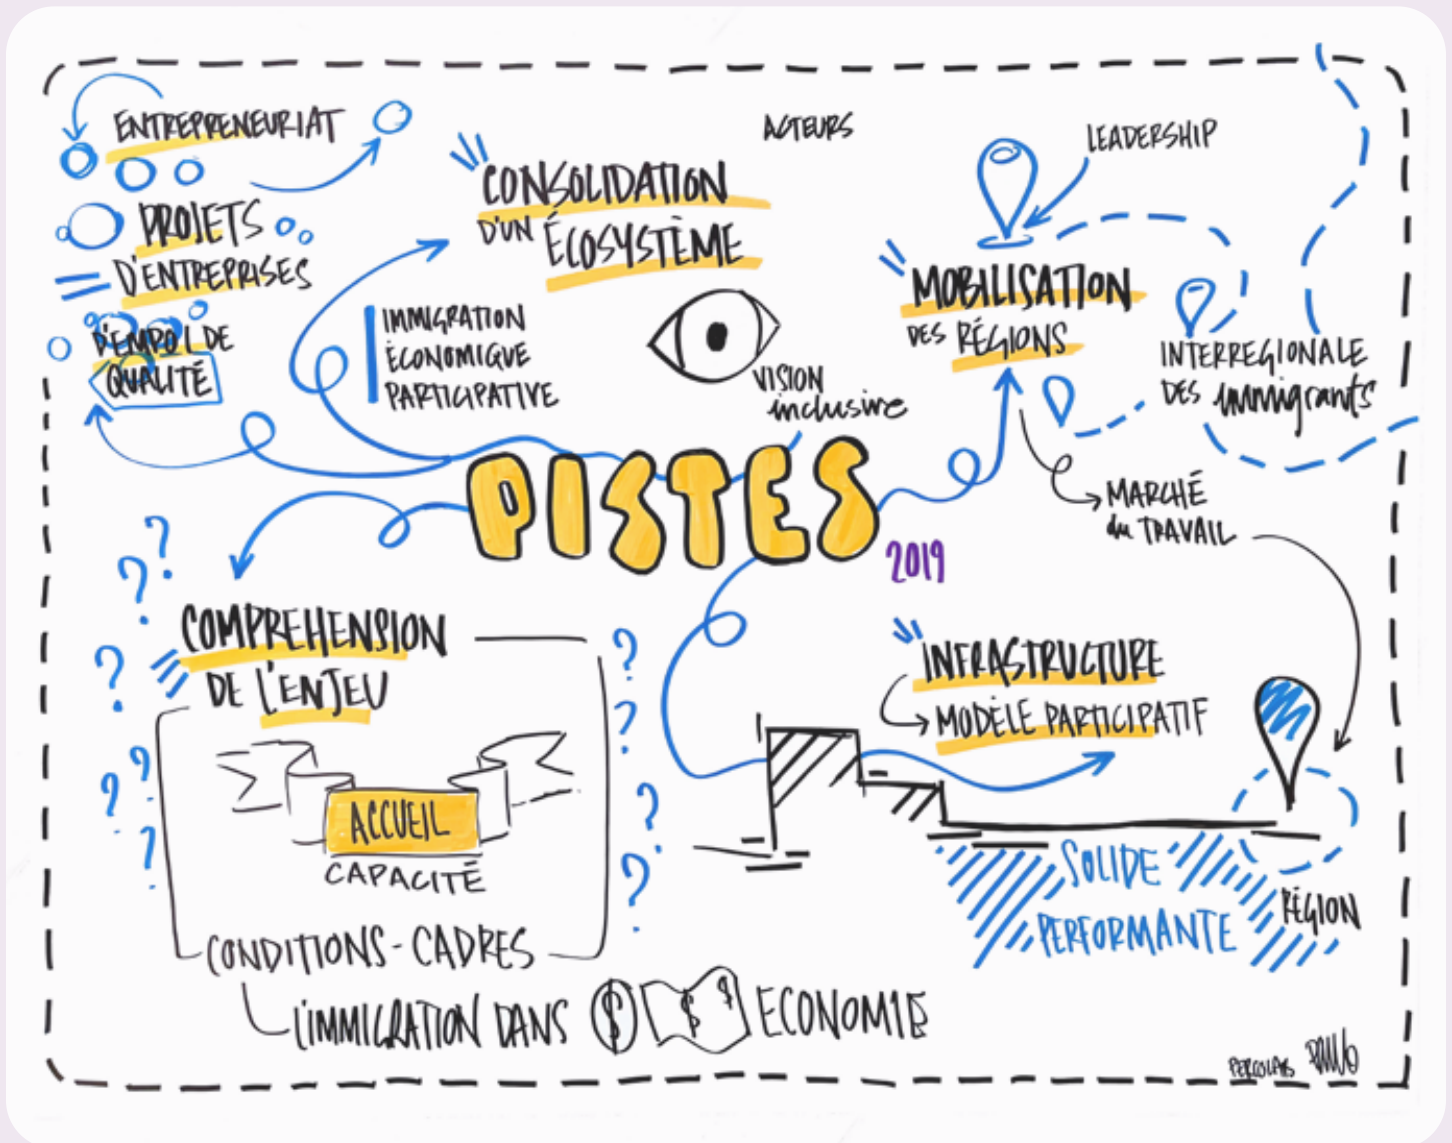 ENTREPRENEURIAT
PROJETS
D'ENTREPRISES
D'EMPOI DE
QUALITÉ
CONSOLIDATION
D'UN ÉCOSYSTÈME
IMMIGRATION
ÉCONOMIQUE
PARTICIPATIVE
ACTEURS
VISION
inclusive
LEADERSHIP
MOBILISATION
DES RÉGIONS
INTERREGIONALE
DES immigrants
MARCHÉ
du TRAVAIL
PISTES
2019
COMPREHENSION
DE L'ENJEU
ACCUEIL
CAPACITÉ
CONDITIONS-CADRES
L'IMMIGRATION DANS $ $ $ ECONOMIE
INFRASTRUCTURE
MODÈLE PARTICIPATIF
SOLIDE
PERFORMANTE
RÉGION
PERCOLAB